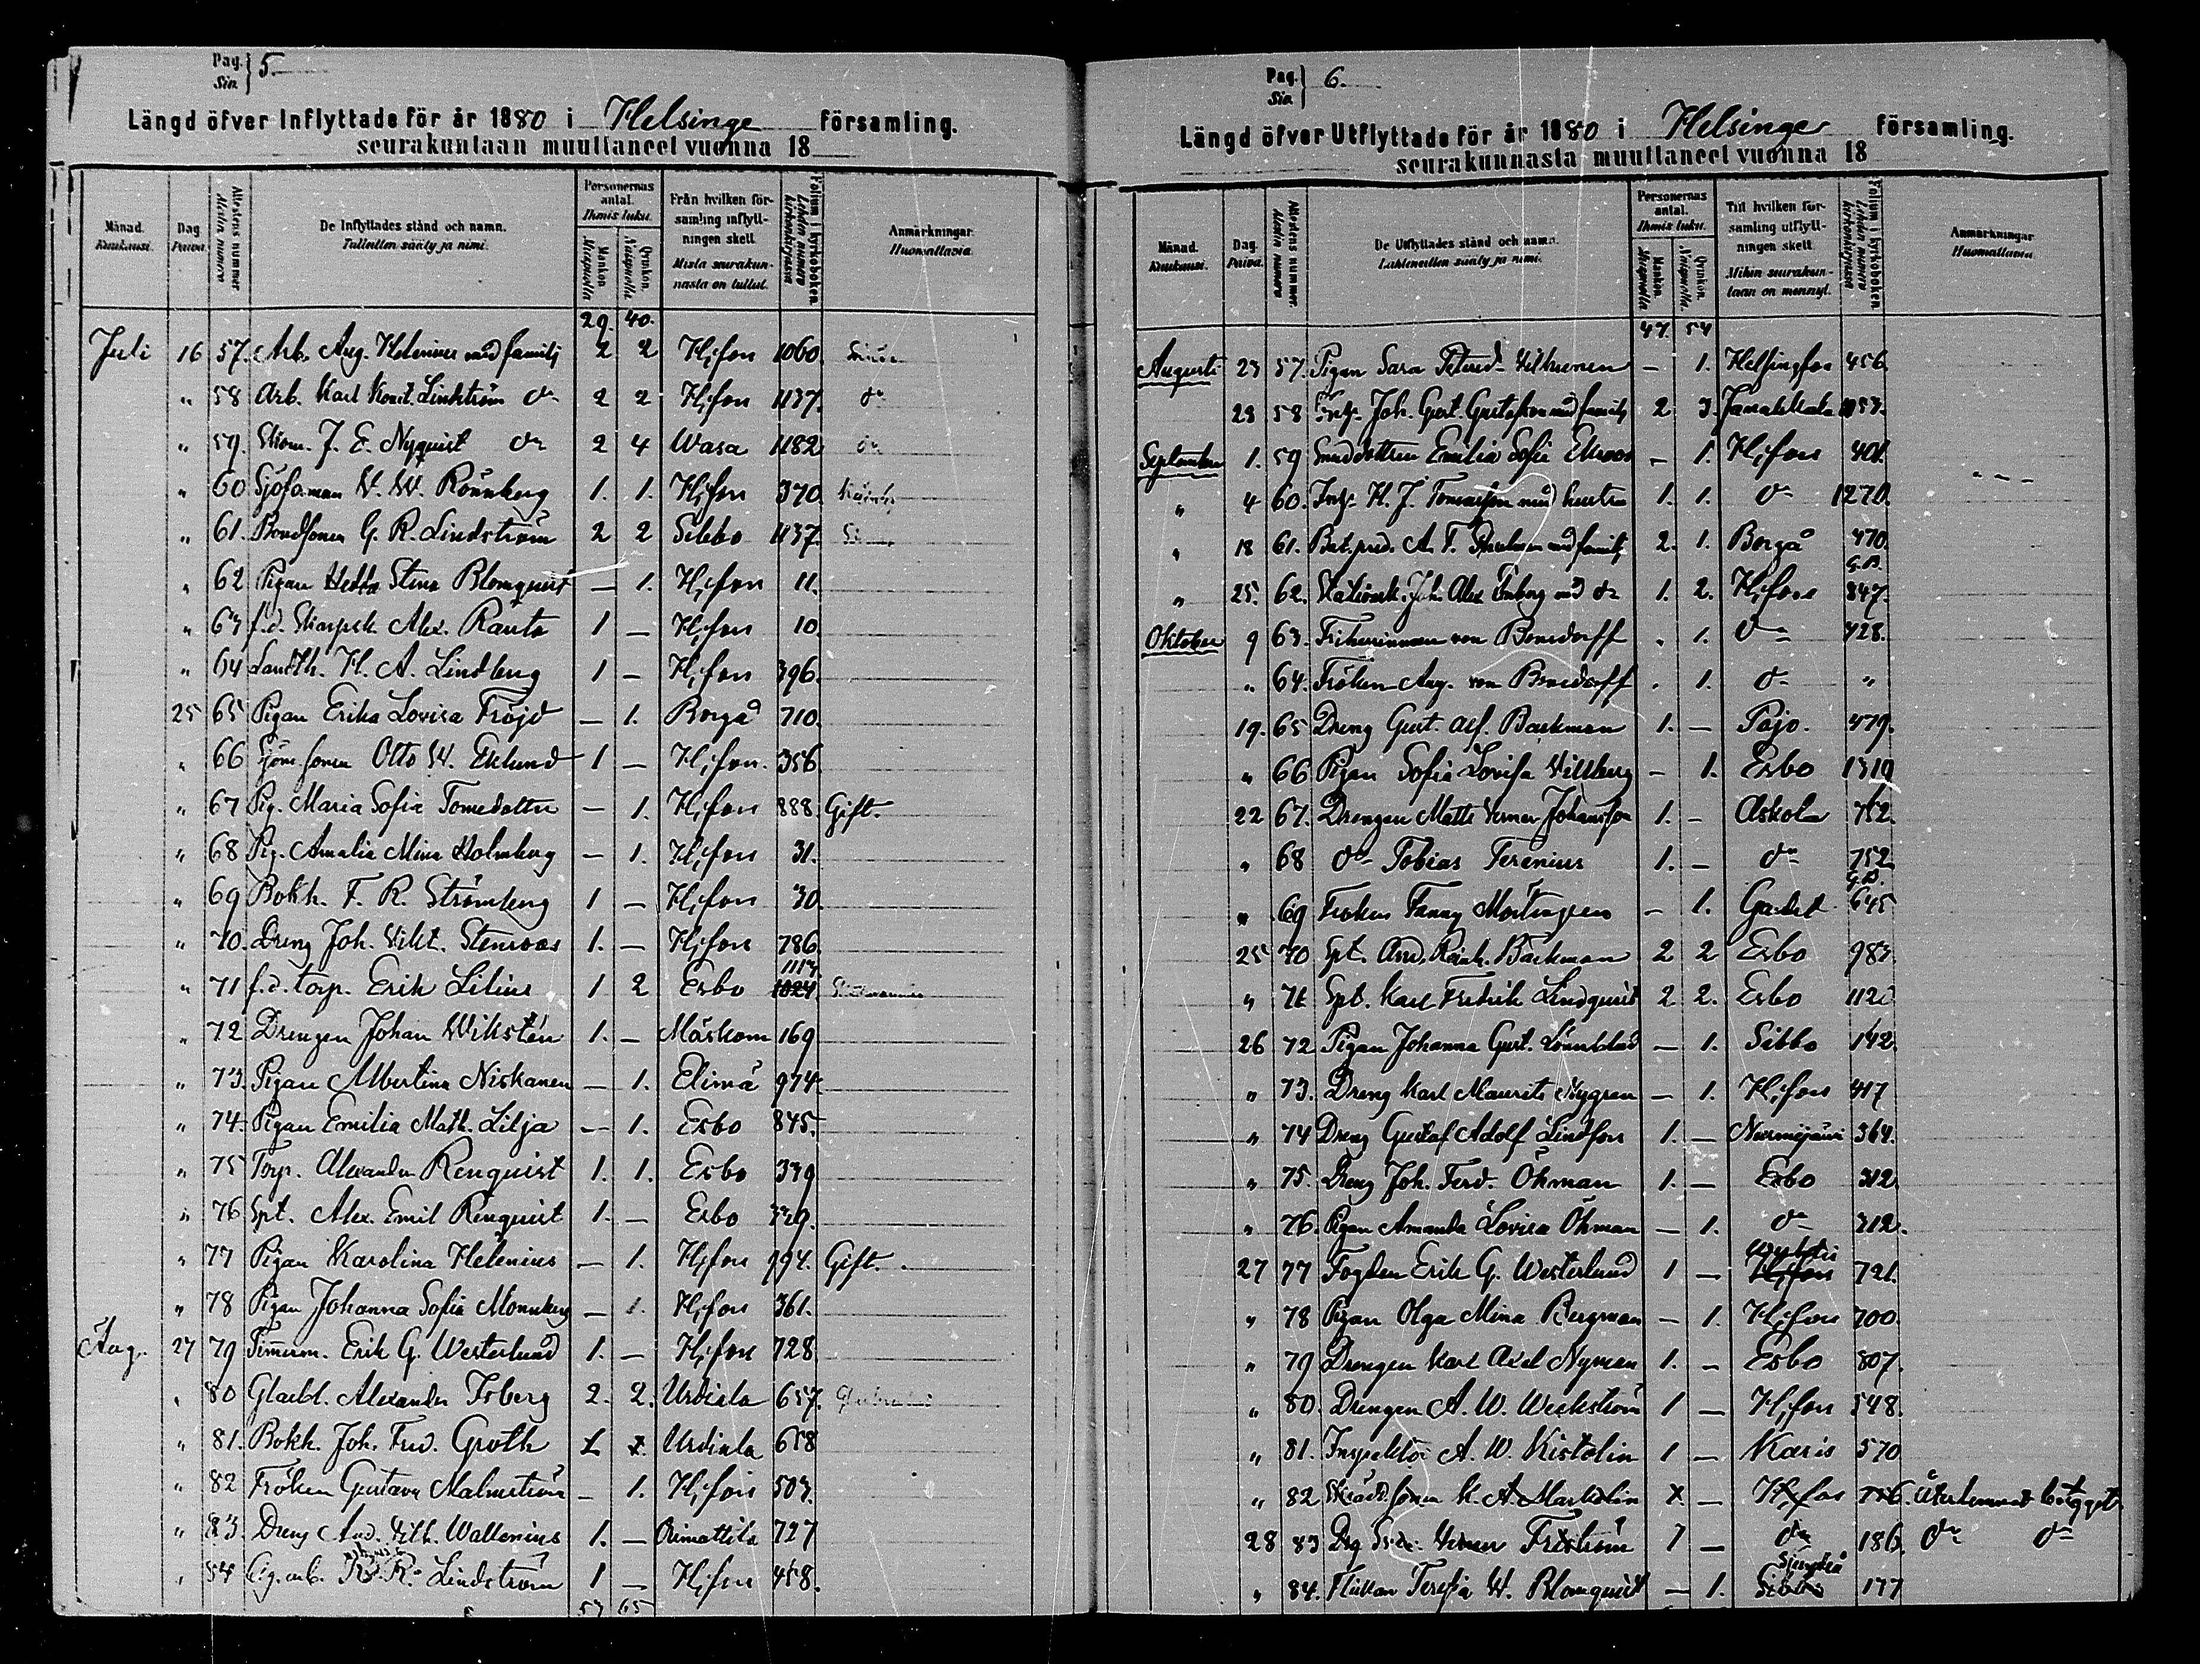 Pag. Sia. } 5.
Längd öfver Inflyttade för år 1880 i Helsinge församling.
seurakuntaan muuttaneet vuonna 18
Månad. Kuukausi.
Dag Päivä.
Attestens nummer Alestin numero
De Inflyttades stånd och namn. Tulleitten sääty ja nimi.
Personernas antal. Ihmis luku.
Mankön. Miespuolia
Qvinkön. Naispuolia
Från hvilken församling inflyttningen skett Mistä seurakunnasta on tullut.
Folium i kyrkoboken. Lehden numero kirkonkirjassa
Anmärkningar Huomattavia.
29. 40.
Juli 16 57. Arb. Aug. Helenius med familj 2 2 H;fors 1060
" 58 Arb. Karl Konst. Lindström do 2 2 H;fors 1137. do
" 59. J. E. Nyquist do 2 4 Wasa 1182 do
" 60 W. Rönnberg 1. 1. H;fors 370.
" 61. Bondsonen G. R. Lindström 2 2 Sibbo 1137.
" 62 Pigan Hedda Stina Blomquist — 1. H;fors 11.
" 63 f.d. Skarpsk. Alex. Ranta 1 — H;fors 10.
" 64 Landth. H. A. Lindberg 1 — H;fors 396.
25 65 Pigan Erika Lovisa Fröjd — 1. Borgå 710.
" 66 Otto W. Eklund 1 — H;fors. 356
" 67 Pig. Maria Sofia Tomedotter — 1. H;fors 888. Gift.
" 68 Pig. Amalia Mina Holmberg — 1. H;fors 31.
" 69 Bokh. F. R. Strömberg 1 — H;fors 30.
" 70. Dreng Joh. Vikt. Stenroos 1. — H;fors 786.
" 71 f.d. torp. Erik Lilius 1 2 Esbo 1113. 1024
" 72 Drengen Johan Wikstén 1. — Mäskom 169
" 73. Pigan Albertina Niskanen — 1. Elimä 974.
" 74. Pigan Emilia Math. Lilja — 1. Esbo 845.
" 75 Torp. Alexander Renquist 1. 1. Esbo 339
" 76 Spt. Alex. Emil Renquist 1. — Esbo 339.
" 77 Pigan Karolina Helenius — 1. H;fors 994. Gift.
" 78 Pigan Johanna Sofia — 1. H;fors 361.
Aug. 27 79 Timerm. Erik G. Westerlund 1. — H;fors 728
" 80 Glasbl. Alexander Isberg 2. 2. Urdiala 657.
" 81. Bokh. Joh. Fred. Groth Urdiala 658
" 82 Fröken Gustava Malmström — 1. H;fors 503.
" 83. Dreng And. Vilh. Wallenius 1. — Orimattila 727
" 84 R. Lindström 1 — H;fors 458.
57 65
Pag. Sia. } 6.
Längd öfver Utflyttade för år 1880 i Helsinge församling.
seurakunnasta muuttaneet vuonna 18
Månad. Kuukausi.
Dag. Päivä.
Attestens nummer. Alestin numero
De Utflyttades stånd och namn. Lähteneitten sääty ja nimi.
Personernas antal. Ihmis luku.
Mankön. Miespuolia
Qvinkön. Naispuolia.
Till hvilken församling utflyttningen skett Mihin seurakuntaan on mennyt.
Folium i kyrkoboken. Lehden numero kirkonkirjassa
Anmärkningar Huomattavia.
47. 54
Augusti 23 57. Pigan Sara — 1. Helsingfors 456.
28 58 Joh. Gust. Gustafsson med familj 2 3. Janakkala 1053.
September 1. 59 Emilia Sofia Ekroos — 1. H;fors 401.
" 4 60. H. J. Tomasson med hustru 1. 1. do 1270.
" 18 61. A. F. med familj 2. 1. Borgå 470.
" 25. 62. Joh. Alex med do 1. 2. H;fors G.B. 847.
Oktober 9 63. Friherrinnan von Bonsdorff " 1. do 428.
" 64. Fröken Aug. von Bonsdorff . 1. do "
19. 65 Dreng Gust. Alf. Backman 1. — Pojo. 479.
" 66 Pigan Sofia Lovisa — 1. Esbo 1319
22 67. Drengen Matts Verner Johansson 1. — Askola 752.
" 68 do Tobias Terenius 1. — do 752
" 69 Fröken Fanny — 1. G.B. 645
25 70 Spt. And. Reinh. Backman 2 2 Esbo 983.
" 71 Spt. Karl Fredrik Lindquist 2 2. Esbo 1120
26 72 Pigan Johanna Gust. Lönnblad — 1. Sibbo 142.
" 73. Dreng Karl Maurits Nygren — 1. H;fors 417
" 74 Dreng Gustaf Adolf Lindfors 1. — Nurmijärvi 364.
" 75. Dreng Joh. Ferd. Öhman 1. — Esbo 312.
" 76. Pigan Amanda Lovisa Öhman — 1. do 312.
27 77 Fogden Erik G. Westerlund 1 — H;fors 721.
" 78 Pigan Olga Mina Bergman — 1. H;fors 700.
" 79 Drengen Karl Axel Nyman 1. — Esbo 807.
" 80. Drengen A. W. Weckström 1 — H;fors 548.
" 81. Inspektor A. W. Kistolin 1 — Karis 570
" 82 K. A. Markolin — H;fors 756. Återlemnat betyget
28 83 Drg Friström 1 — do 186. do do
" 84. Flickan Teresia W. Blomquist — 1. Sjundeå 177